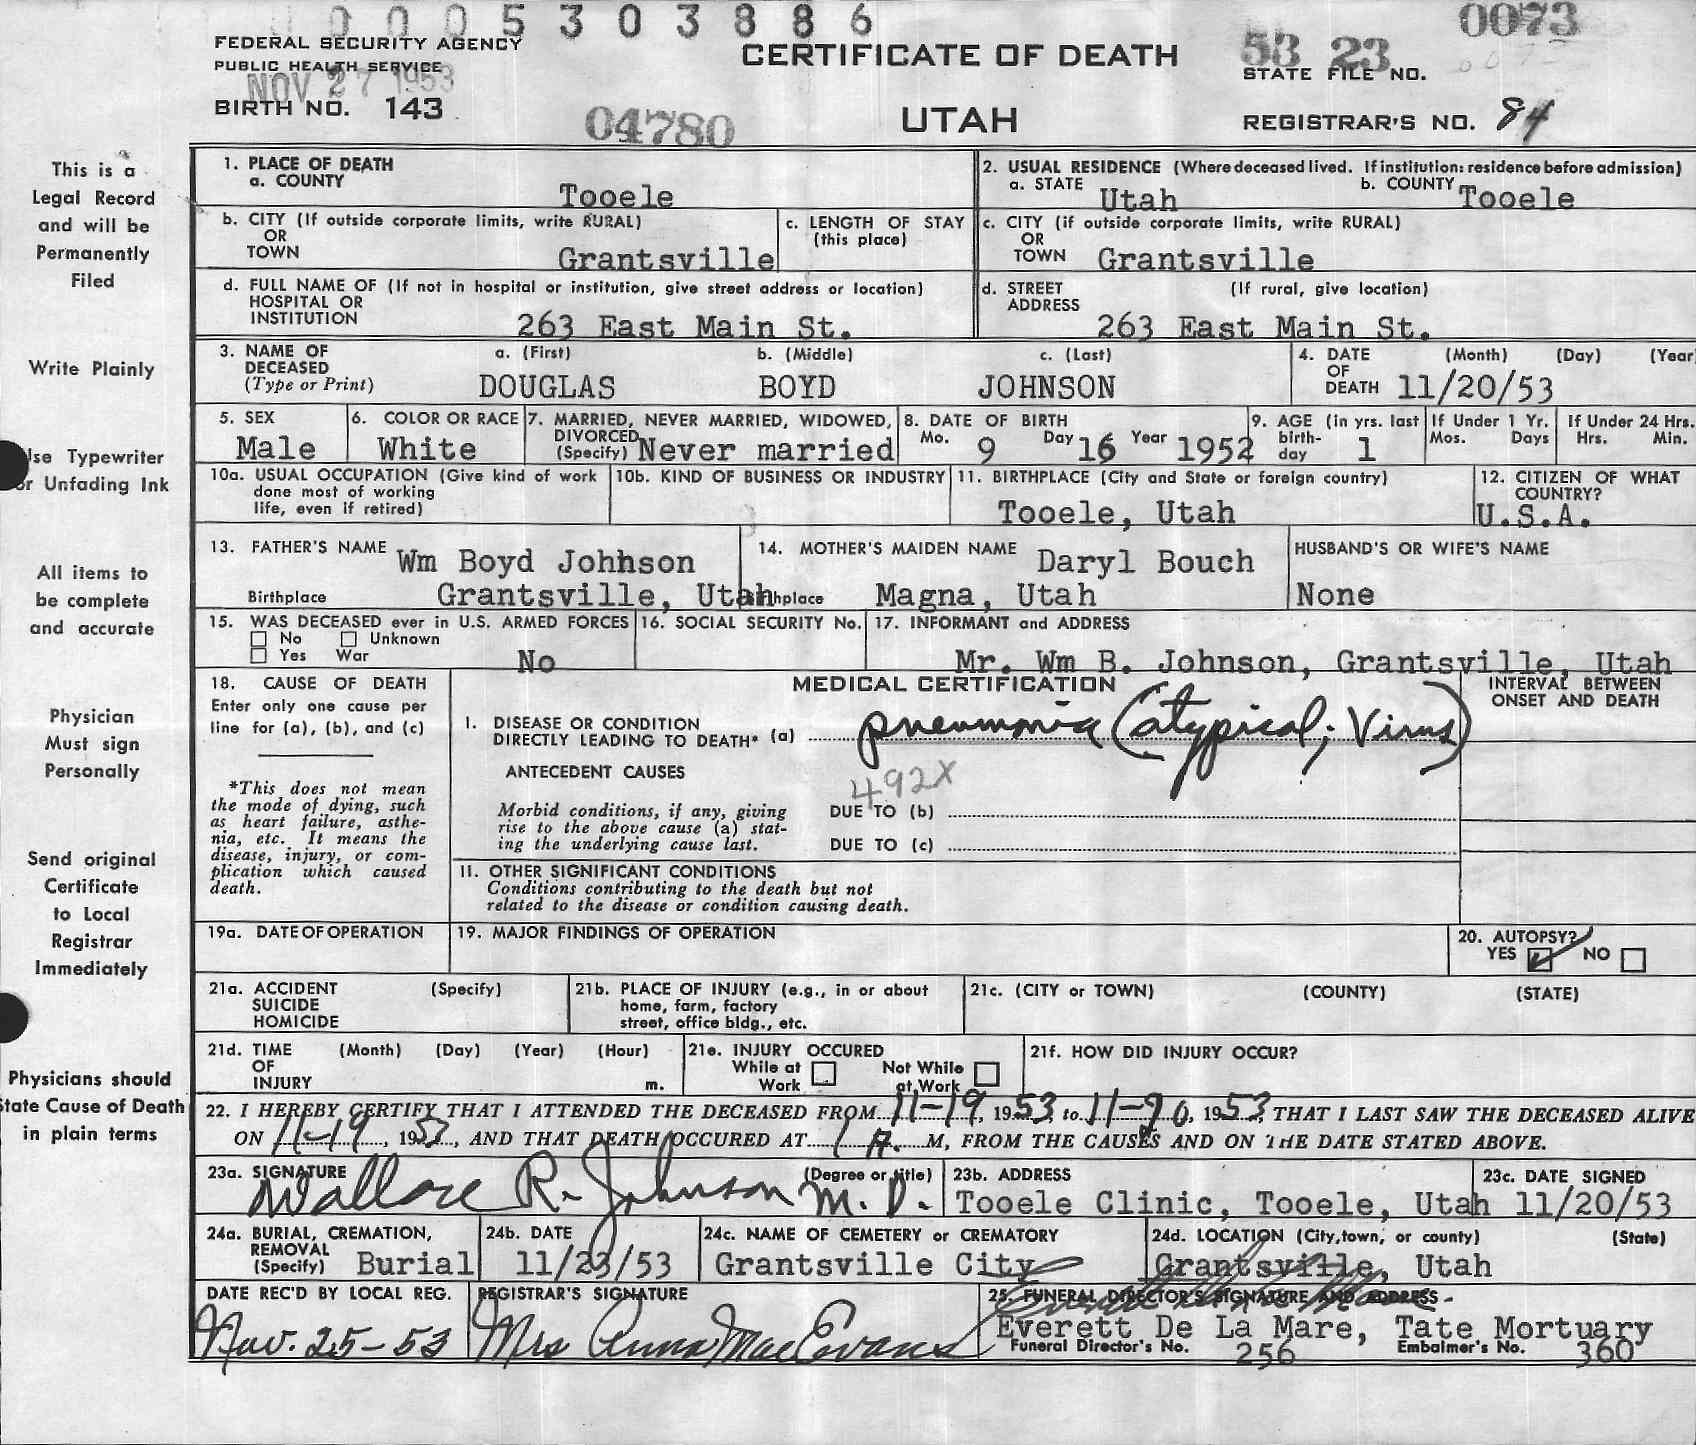 0005303886
FEDERAL SECURITY AGENCY
PUBLIC HEALTH SERVICE
NOV 27 1953
BIRTH NO. 143
04780
CERTIFICATE OF DEATH
UTAH
53 23 0073
STATE FILE NO.
REGISTRAR'S NO. 84
This is a
Legal Record
and will be
Permanently
Filed
Write Plainly
Use Typewriter
or Unfading Ink
All items to
be complete
and accurate
Physician
Must sign
Personally
Send original
Certificate
to Local
Registrar
Immediately
Physicians should
State Cause of Death
in plain terms
1. PLACE OF DEATH
a. COUNTY
Tooele
2. USUAL RESIDENCE (Where deceased lived. If institution: residence before admission)
a. STATE Utah b. COUNTY Tooele
b. CITY (If outside corporate limits, write RURAL)
OR
TOWN Grantsville
c. LENGTH OF STAY
(this place)
c. CITY (if outside corporate limits, write RURAL)
OR
TOWN Grantsville
d. FULL NAME OF (If not in hospital or institution, give street address or location)
HOSPITAL OR
INSTITUTION 263 East Main St.
d. STREET (If rural, give location)
ADDRESS 263 East Main St.
3. NAME OF DECEASED
(Type or Print)
a. (First) b. (Middle) c. (Last)
DOUGLAS BOYD JOHNSON
4. DATE OF DEATH (Month) (Day) (Year
11/20/53
5. SEX
Male
6. COLOR OR RACE
White
7. MARRIED, NEVER MARRIED, WIDOWED,
DIVORCED
(Specify) Never married
8. DATE OF BIRTH
Mo. 9 Day 16 Year 1952
9. AGE (in yrs. last birth-day 1
If Under 1 Yr.
Mos. Days
If Under 24 Hrs.
Hrs. Min.
10a. USUAL OCCUPATION (Give kind of work
done most of working
life, even if retired)
10b. KIND OF BUSINESS OR INDUSTRY
11. BIRTHPLACE (City and State or foreign country)
Tooele, Utah
12. CITIZEN OF WHAT
COUNTRY?
U.S.A.
13. FATHER'S NAME Wm Boyd Johhson
Birthplace Grantsville, Utah
14. MOTHER'S MAIDEN NAME Daryl Bouch
Birthplace Magna, Utah
HUSBAND'S OR WIFE'S NAME
None
15. WAS DECEASED ever in U.S. ARMED FORCES
No Unknown
Yes War No
16. SOCIAL SECURITY No.
17. INFORMANT and ADDRESS
Mr. Wm B. Johnson, Grantsville, Utah
18. CAUSE OF DEATH
Enter only one cause per
line for (a), (b), and (c)
*This does not mean
the mode of dying, such
as heart failure, asthe-
nia, etc. It means the
disease, injury, or com-
plication which caused
death.
MEDICAL CERTIFICATION
INTERVAL BETWEEN
ONSET AND DEATH
I. DISEASE OR CONDITION
DIRECTLY LEADING TO DEATH* (a) pneumonia (atypical; Virus)
ANTECEDENT CAUSES
492X
Morbid conditions, if any, giving
rise to the above cause (a) stat-
ing the underlying cause last.
DUE TO (b)
DUE TO (c)
11. OTHER SIGNIFICANT CONDITIONS
Conditions contributing to the death but not
related to the disease or condition causing death.
19a. DATE OF OPERATION
19. MAJOR FINDINGS OF OPERATION
20. AUTOPSY?
YES NO
21a. ACCIDENT (Specify)
SUICIDE
HOMICIDE
21b. PLACE OF INJURY (e.g., in or about
home, farm, factory
street, office bldg., etc.
21c. (CITY or TOWN) (COUNTY) (STATE)
21d. TIME (Month) (Day) (Year) (Hour)
OF
INJURY m.
21e. INJURY OCCURED
While at Work Not While at Work
21f. HOW DID INJURY OCCUR?
22. I HEREBY CERTIFY THAT I ATTENDED THE DECEASED FROM 11-19, 1953, to 11-20, 1953, THAT I LAST SAW THE DECEASED ALIVE
ON 11-19, 1953, AND THAT DEATH OCCURED AT 1 A. M, FROM THE CAUSES AND ON THE DATE STATED ABOVE.
23a. SIGNATURE (Degree or title)
Wallace R. Johnson M.D.
23b. ADDRESS
Tooele Clinic, Tooele, Utah
23c. DATE SIGNED
11/20/53
24a. BURIAL, CREMATION,
REMOVAL
(Specify) Burial
24b. DATE
11/23/53
24c. NAME OF CEMETERY or CREMATORY
Grantsville City
24d. LOCATION (City, town, or county) (State)
Grantsville, Utah
DATE REC'D BY LOCAL REG.
Nov. 25-53
REGISTRAR'S SIGNATURE
Mrs Anna Mae Evans
25. FUNERAL DIRECTOR'S SIGNATURE AND ADDRESS
Everett De La Mare, Tate Mortuary
Funeral Director's No. 256 Embalmer's No. 360